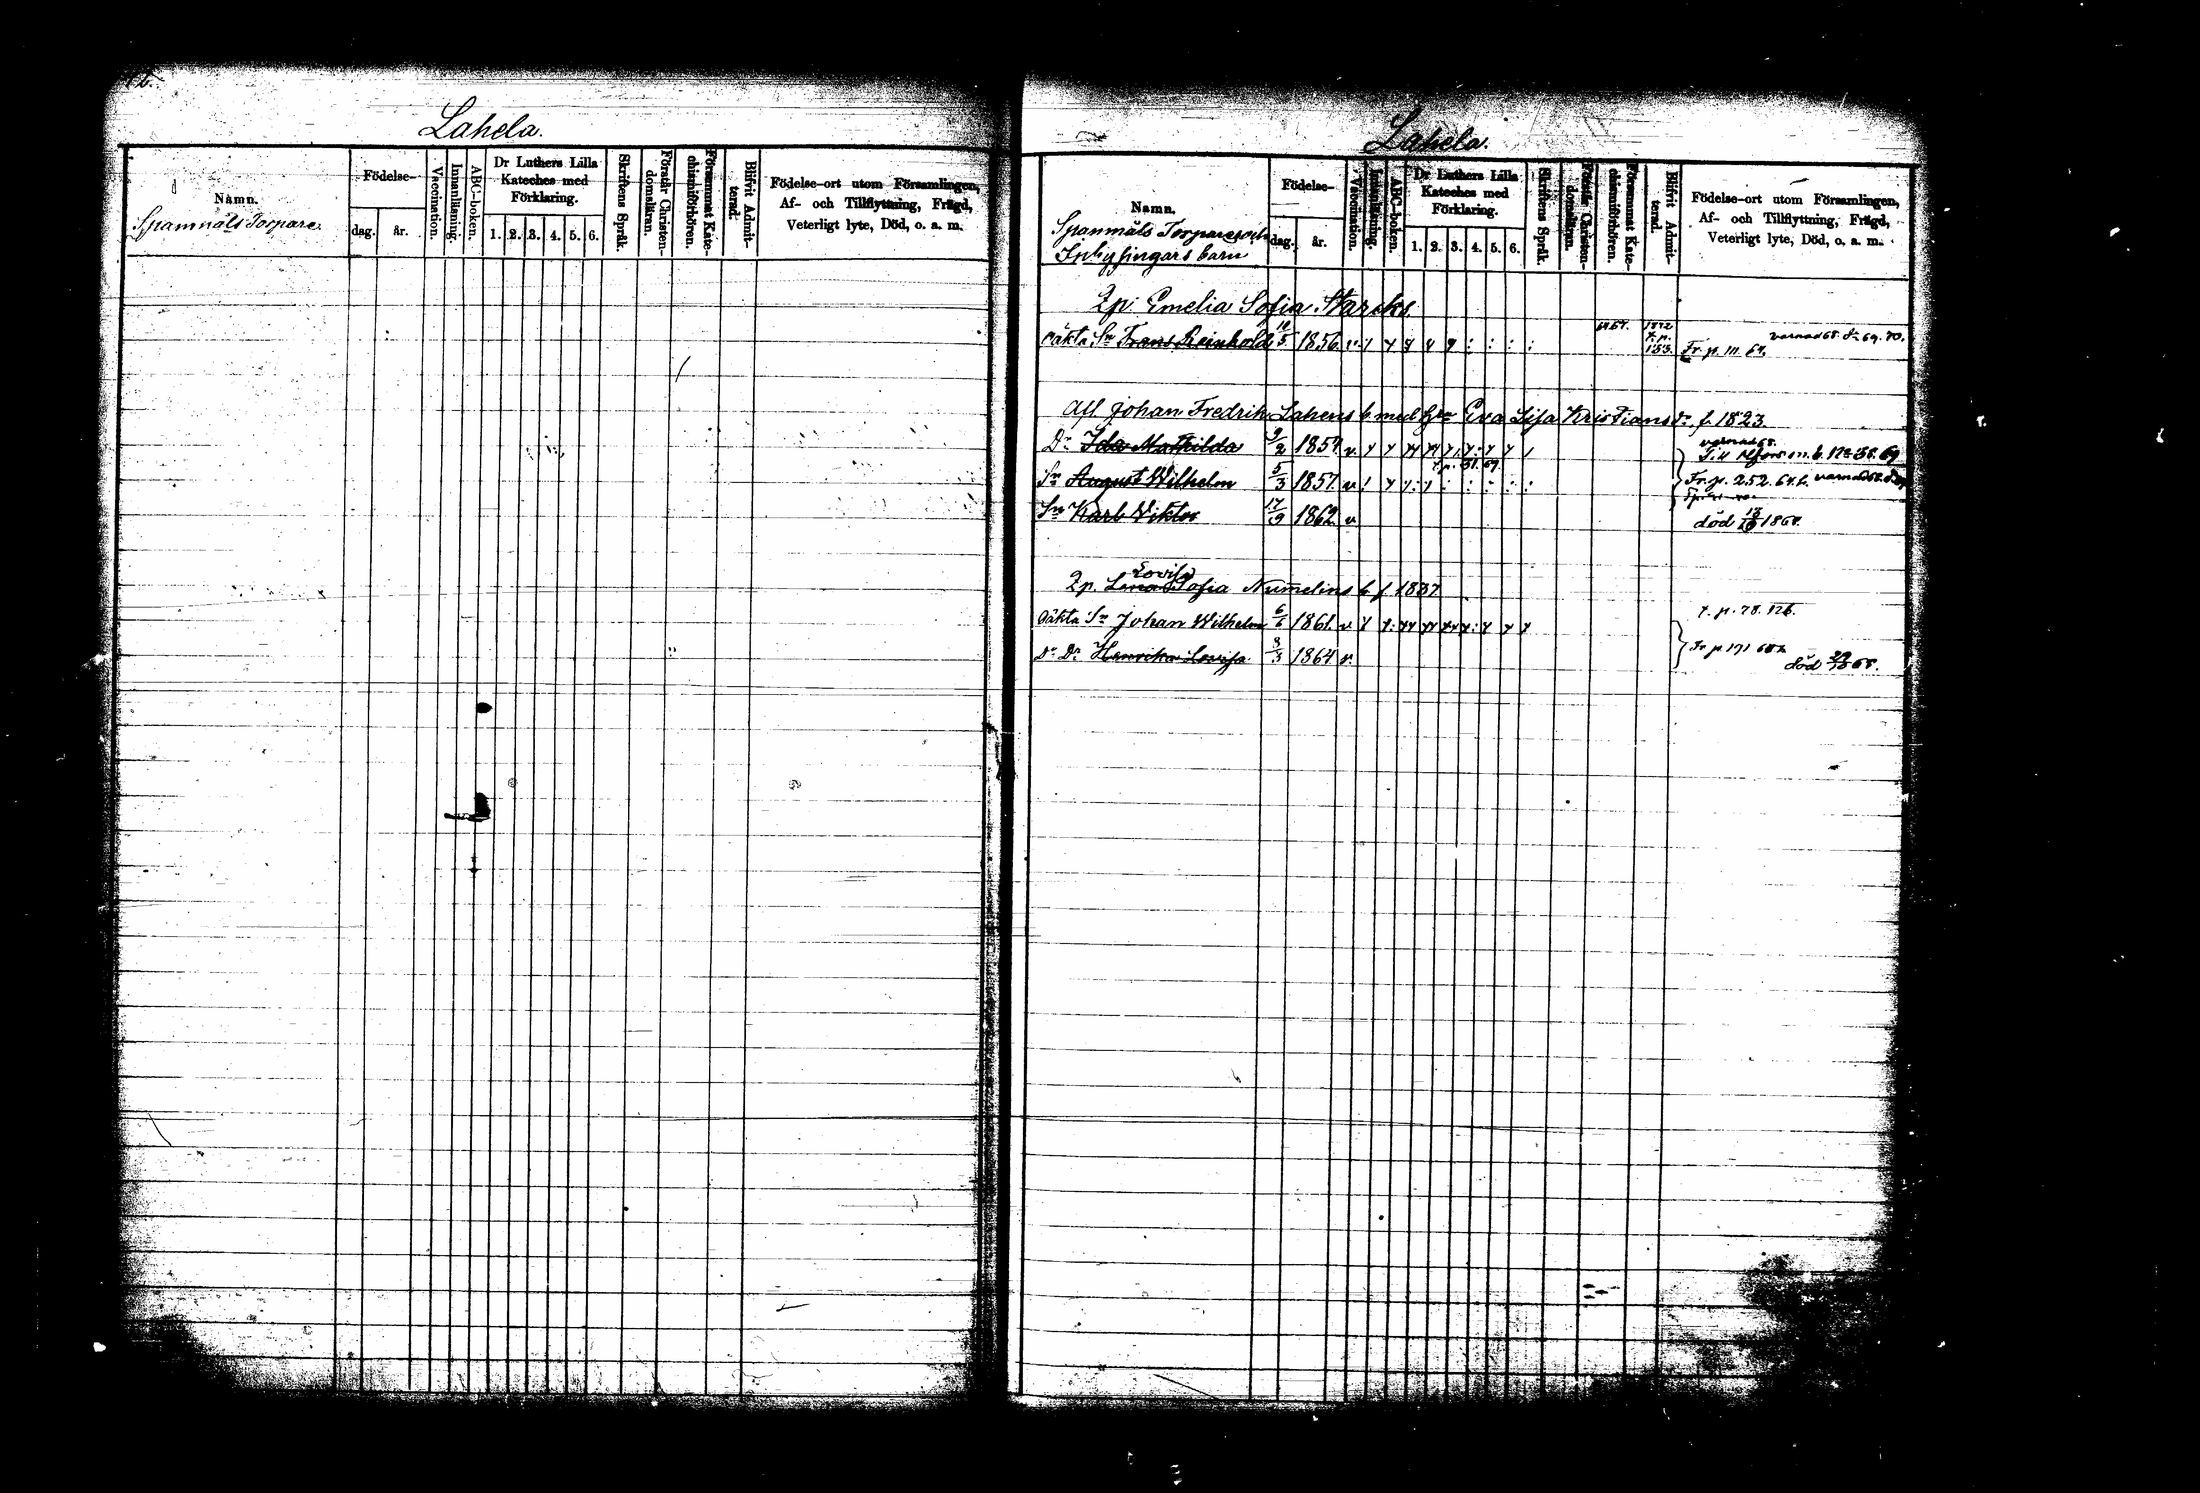 Lahela.
Namn.
Spanmåls Torpare.
Födelse-
dag. år.
Vaccination.
Innanläsning.
ABC-boken.
Dr Luthers Lilla
Kateches med
Förklaring.
1. 2. 3. 4. 5. 6.
Skriftens Språk.
Förstår Christen-
domsläran.
Försummat Kate-
chismiförhören.
Blifvit Admit-
terad.
Födelse-ort utom Församlingen,
Af- och Tillflyttning, Frägd,
Veterligt lyte, Död, o. a. m.
Lahela.
Namn.
Spanmåls Torpares och
Inhysingars barn
Födelse-
dag. år.
Vaccination.
Innanläsning.
ABC-boken.
Dr Luthers Lilla
Kateches med
Förklaring.
1. 2. 3. 4. 5. 6.
Skriftens Språk.
Förstår Christen-
domsläran.
Försummat Kate-
chismiförhören.
Blifvit Admit-
terad.
Födelse-ort utom Församlingen,
Af- och Tillflyttning, Frägd,
Veterligt lyte, Död, o. a. m.
Qp. Emelia Sofia Starcks
oäkta Sn Frans Reinhold 10/5 1856 v. 1872 t. p. 153. Fr. p. 111. 67. varnad 68. 69. 70.
Afl. Johan Fredrik Lahens b med Hru Eva Lisa Kristians dr f. 1823.
Dr Ida Mathilda 9/2 1854 v. varnad 68.
t. p. 31. 69.
Sn August Wilhelm 5/3 1857 v. Fr. p. 252. varnad 68.
Sn Karl Viktor 17/9 1862 v. död 13/10 1868.
Lovisa
Qp. Lena Sofia Numelins b f. 1837
oäkta Sn Johan Wilhelm 6/6 1861 v. t. p. 78. 126.
Dr Dr Henrika Lovisa 8/3 1864 v. Fr. p. 171 död 29/10 68.